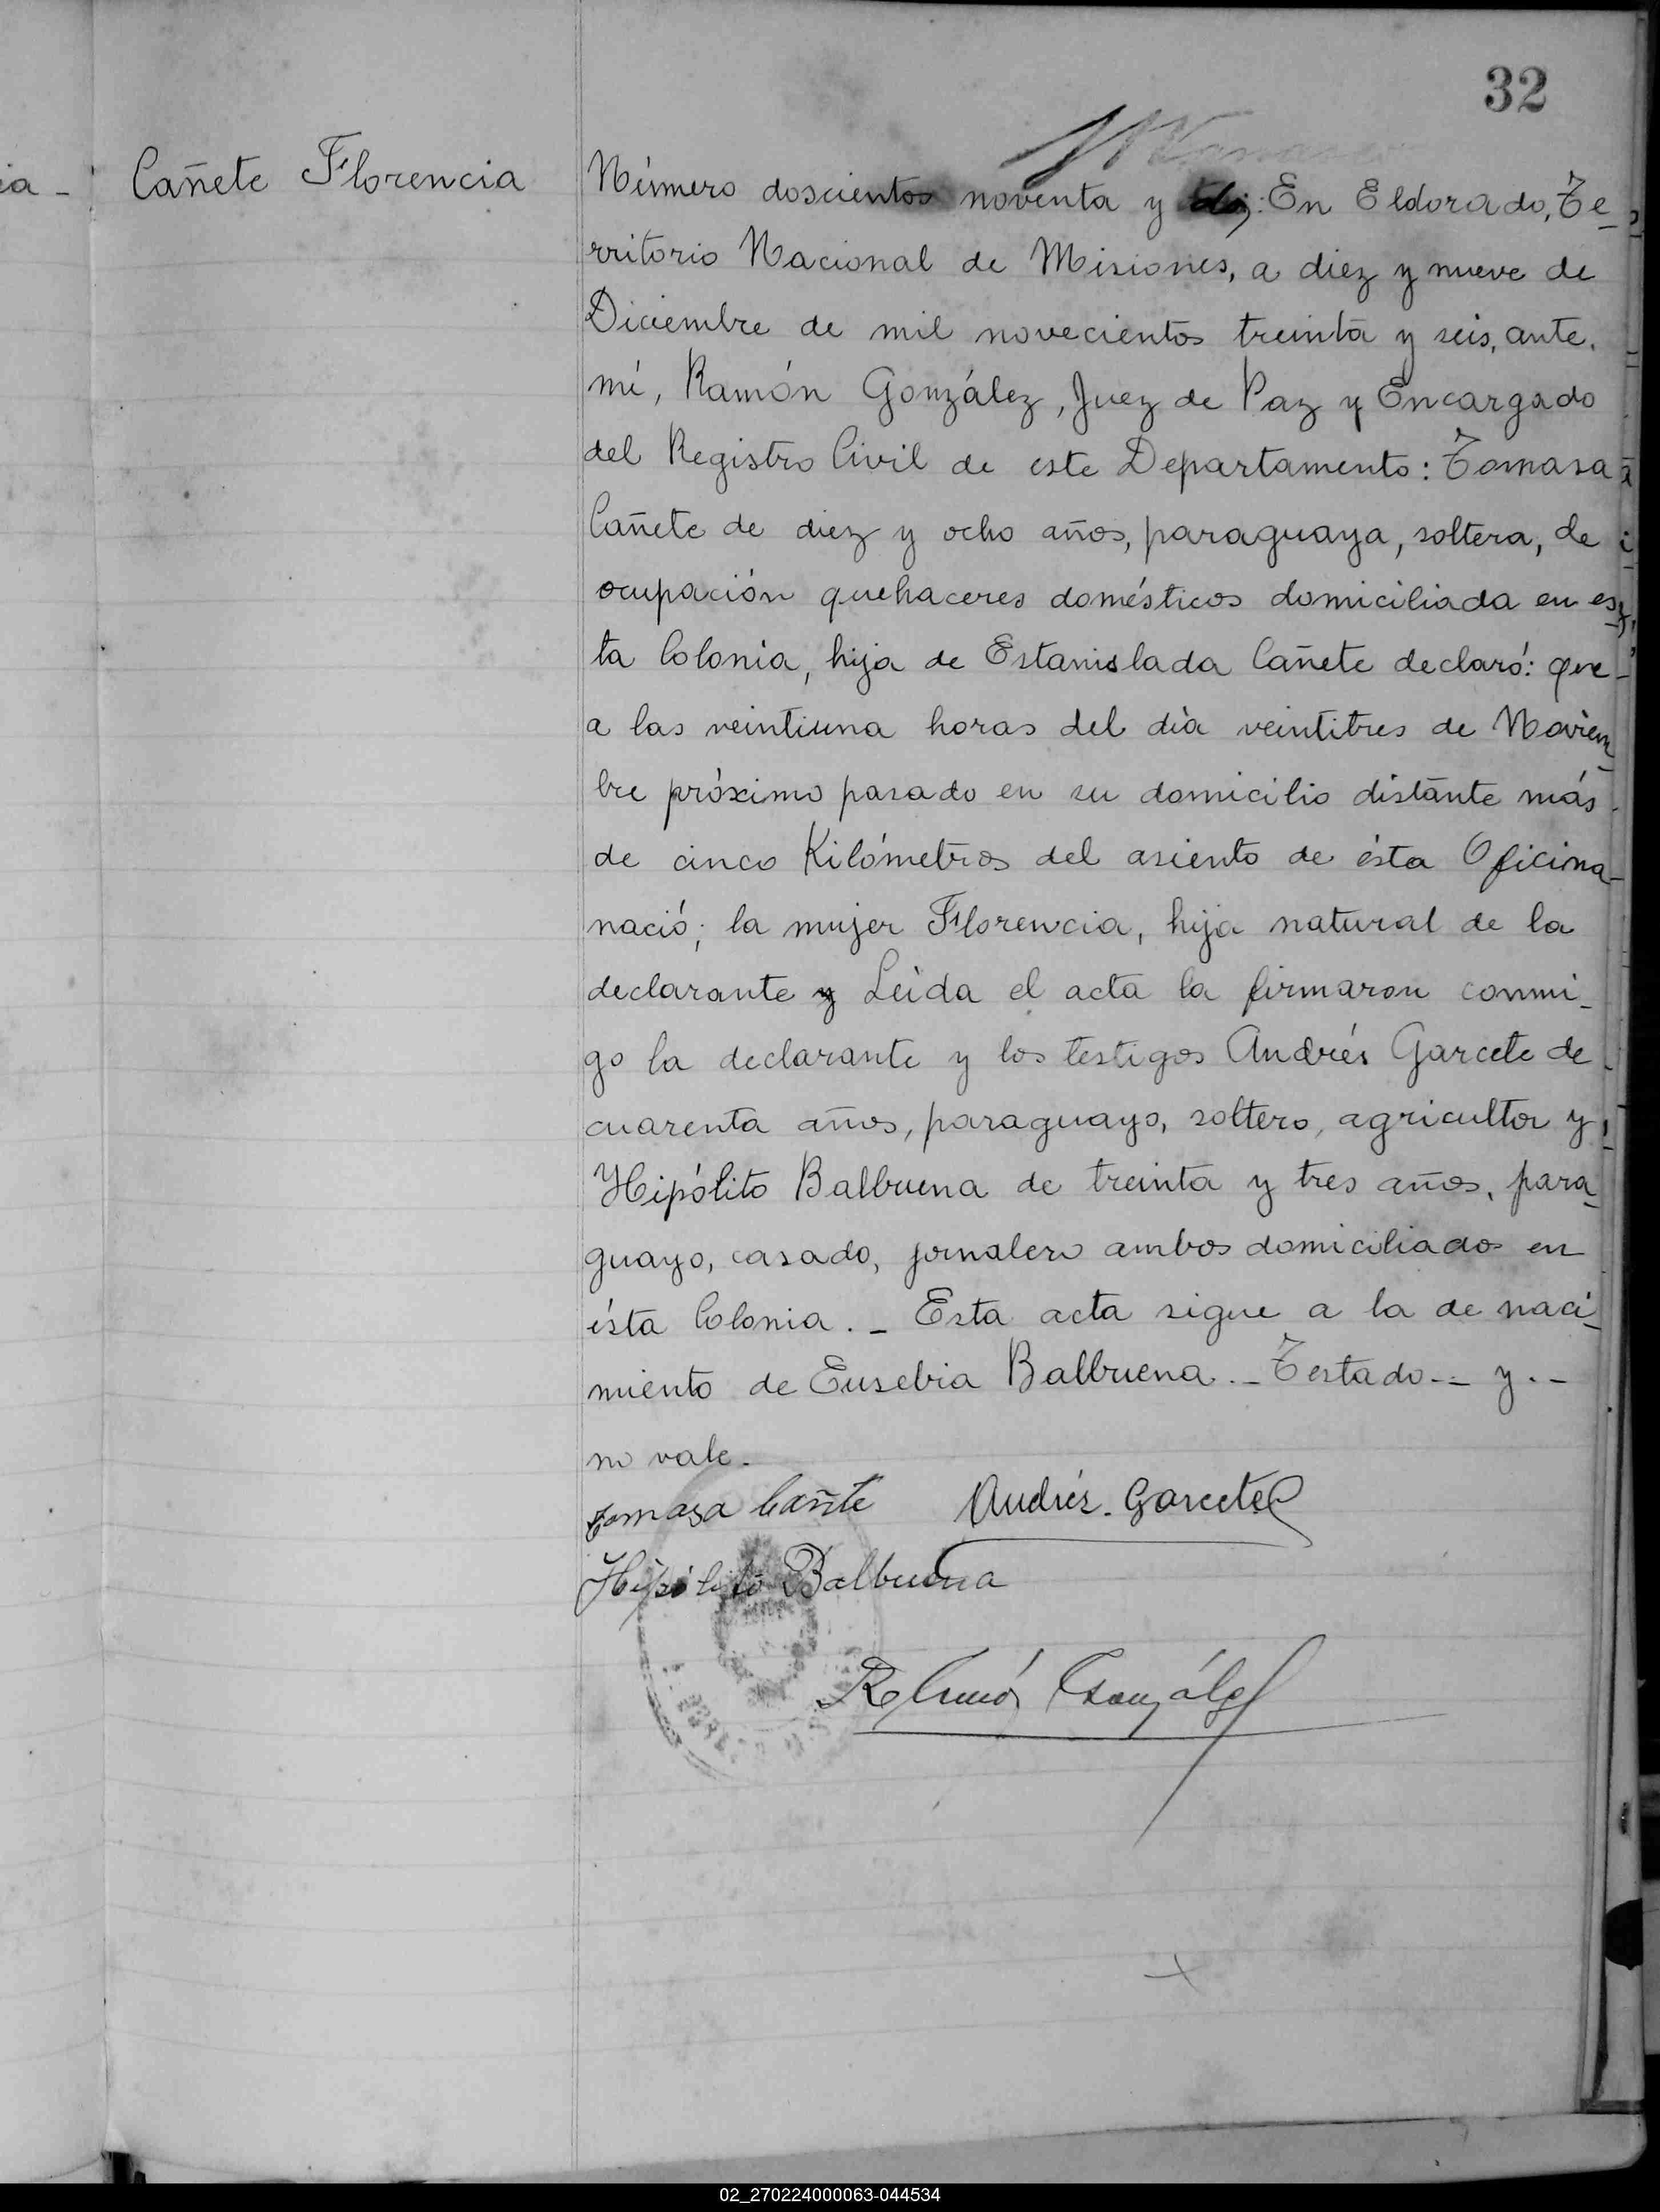 32
Cañete Florencia
Número doscientos noventa y dos: En Eldorado, Te-
rritorio Nacional de Misiones, a diez y nueve de
Diciembre de mil novecientos treinta y seis, ante.
mí, Ramón González, Juez de Paz y Encargado
del Registro Civil de este Departamento: Tomasa
Cañete de diez y ocho años, paraguaya, soltera, de
ocupación quehaceres domésticos domiciliada en es-
ta Colonia, hija de Estanislada Cañete declaró: que
a las veintiuna horas del día veintitres de Noviem-
bre próximo pasado en su domicilio distante más
de cinco Kilómetros del asiento de ésta Oficina
nació; la mujer Florencia, hija natural de la
declarante y Leida el acta la firmaron conmi-
go la declarante y los testigos Andrés Garcete de
cuarenta años, paraguayo, soltero, agricultor y
Hipólito Balbuena de treinta y tres años, para-
guayo, casado, jornalero ambos domiciliados en
ésta Colonia._ Esta acta sigue a la de naci-
miento de Eusebia Balbuena._ Testado-_ y._
no vale.
tomasa Cañte Andrés. Garcete
Hipólito Balbuena
Ramón González
02_270224000063-044534